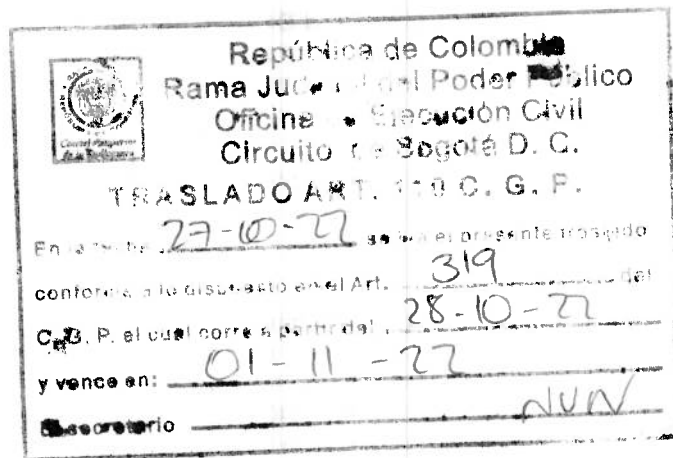 República de Colombia
Rama Judicial del Poder Público
Oficina de Ejecución Civil
Circuito de Bogotá D. C.
Consejo Superior
de la Judicatura
TRASLADO ART. 110 C. G. P.
En la fecha 27-10-22 se fija el presente traslado
conforme a lo dispuesto en el Art. 319 del
C. G. P. el cual corre a partir del 28-10-22
y vence en: 01-11-22
secretario